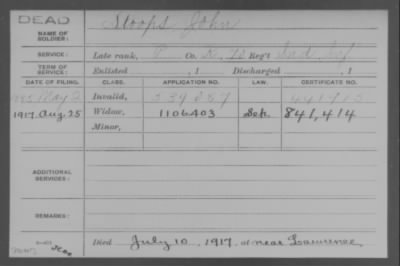 DEAD
NAME OF SOLDIER: Stoops John
SERVICE: Late rank, P Co. K, 70 Reg't Ind Inf
TERM OF SERVICE: Enlisted , 1 Discharged , 1
DATE OF FILING. CLASS. APPLICATION NO. LAW. CERTIFICATE NO.
May 2 Invalid,
1917. Aug. 25 Widow, 1106403 Sep. 841,414
Minor,
ADDITIONAL SERVICES:
REMARKS:
Died July 10, 1917, at near Lawrence